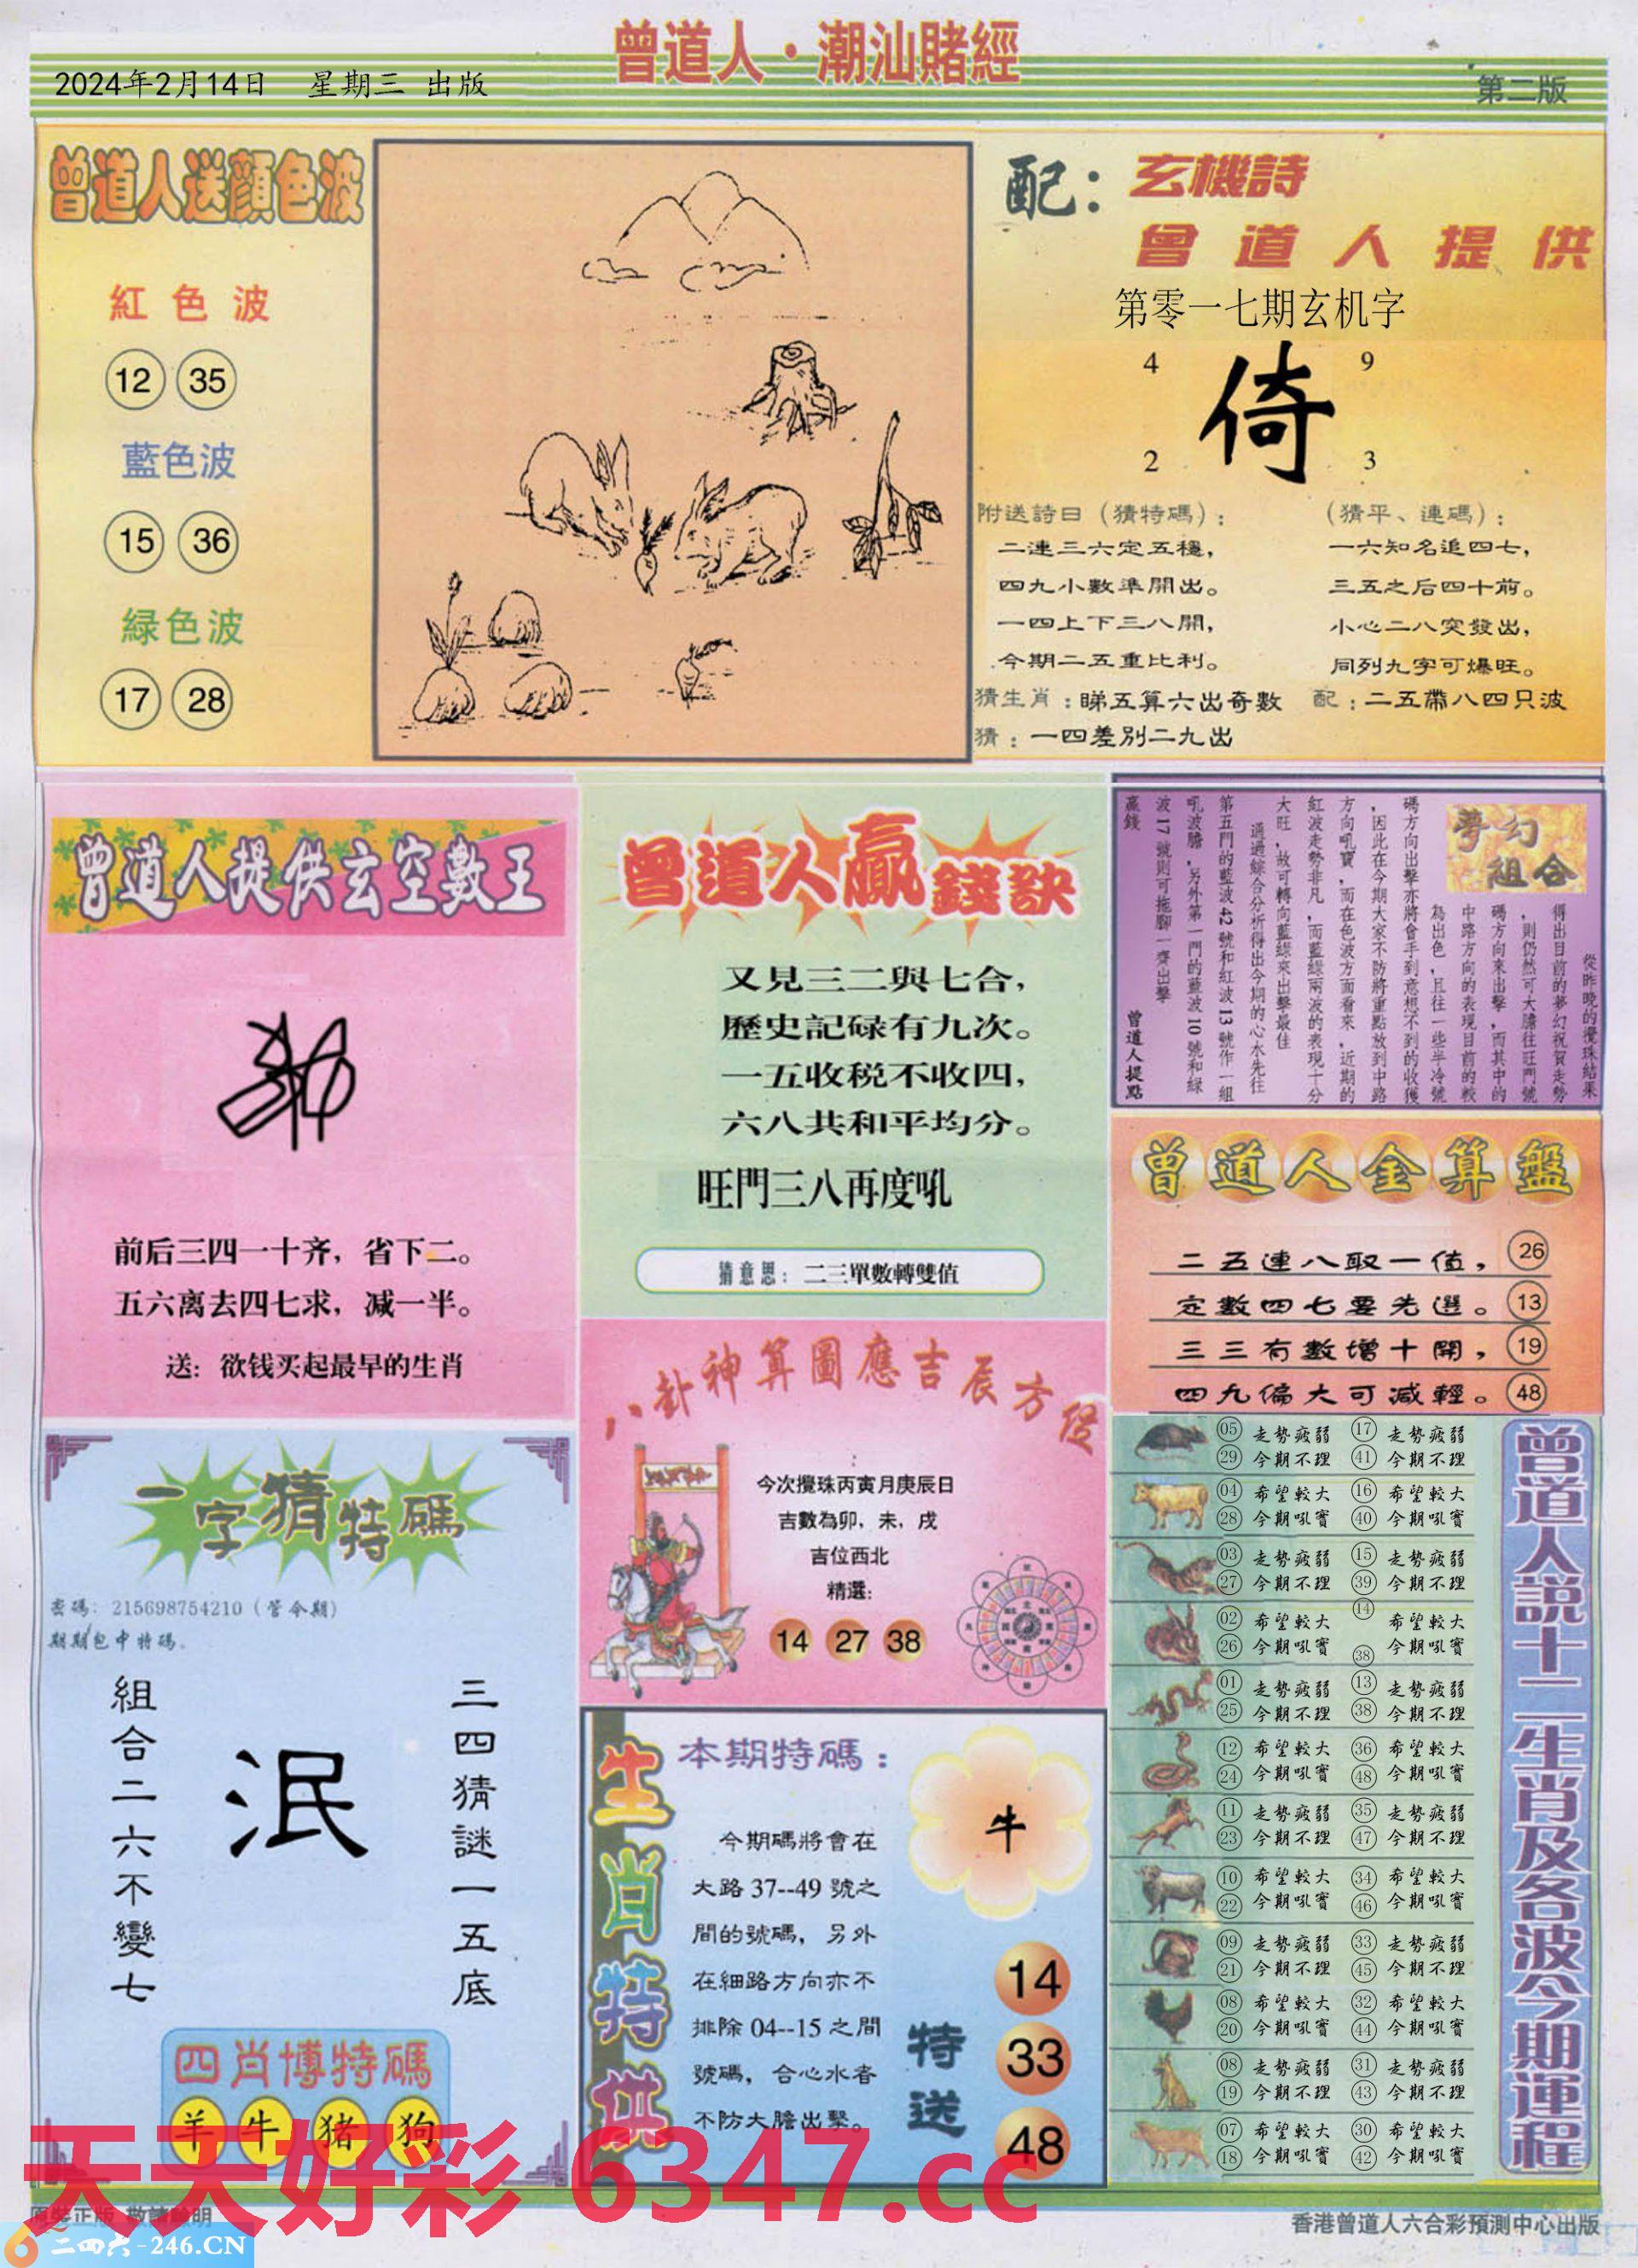 曾道人·潮汕賭經
2024年2月14日 星期三 出版
第二版
曾道人送顔色波
紅色波
12 35
藍色波
15 36
緑色波
17 28
配：玄機詩
曾道人提供
第零一七期玄机字
4 9
倚
2 3
附送詩曰（猜特碼）：
二連三六定五穩，
四九小數準開出。
一四上下三八開，
今期二五重比利。
（猜平、連碼）：
一六知名追四七，
三五之后四十前。
小心二八突發出，
同列九字可爆旺。
猜生肖：睇五算六出奇數 配：二五帶八四只波
猜：一四差別二九出
曾道人提供玄空數王
前后三四一十齐，省下二。
五六离去四七求，减一半。
送：欲钱买起最早的生肖
曾道人贏錢訣
又見三二與七合，
歷史記碌有九次。
一五收税不收四，
六八共和平均分。
旺門三八再度吼
猜意思：二三單數轉雙值
夢幻組合
從昨晚的攪珠結果
得出目前的夢幻祝賀走勢
，則仍然可大膽往旺門號
碼方向來出擊，而其中的
中路方向的表現目前的較
為出色，且往一些半冷號
碼方向出擊亦將會手到意想不到的收獲
，因此在今期大家不防將重點放到中路
方向吼寶，而在色波方面看來，近期的
紅波走勢非凡，而藍綠兩波的表現十分
大旺，故可轉向藍綠來出擊最佳
通過綜合分析得出今期的心水先往
第五門的藍波42號和紅波13號作一組
吼波膽，另外第一門的藍波10號和綠
波17號則可拖腳一齊出擊
贏錢 曾道人提點
曾道人金算盤
二五連八取一值，26
定數四七要先選。13
三三有數增十開，19
四九偏大可減輕。48
八卦神算圖應吉辰方位
今次攪珠丙寅月庚辰日
吉數為卯，未，戌
吉位西北
精選：
14 27 38
一字猜特碼
密碼：215698754210（管令期）
期期包中特碼。
組合二六不變七
泯
三四猜謎一五底
四肖博特碼
羊 牛 豬 狗
生肖特供
本期特碼：
牛
今期碼將會在
大路37--49號之
間的號碼，另外
在細路方向亦不
排除04--15之間
號碼，合心水者
不防大膽出擊。
特送
14
33
48
曾道人說十二生肖及各波今期運程
05 走勢疲弱 17 走勢疲弱
29 今期不理 41 今期不理
04 希望較大 16 希望較大
28 今期吼實 40 今期吼實
03 走勢疲弱 15 走勢疲弱
27 今期不理 39 今期不理
02 希望較大 14 希望較大
26 今期吼實 38 今期吼實
01 走勢疲弱 13 走勢疲弱
25 今期不理 38 今期不理
12 希望較大 36 希望較大
24 今期吼實 48 今期吼實
11 走勢疲弱 35 走勢疲弱
23 今期不理 47 今期不理
10 希望較大 34 希望較大
22 今期吼實 46 今期吼實
09 走勢疲弱 33 走勢疲弱
21 今期不理 45 今期不理
08 希望較大 32 希望較大
20 今期吼實 44 今期吼實
08 走勢疲弱 31 走勢疲弱
19 今期不理 43 今期不理
07 希望較大 30 希望較大
18 今期吼實 42 今期吼實
天天好彩 6347.cc
原裝正版 敬請驗明
二四六-246.CN
香港曾道人六合彩預測中心出版